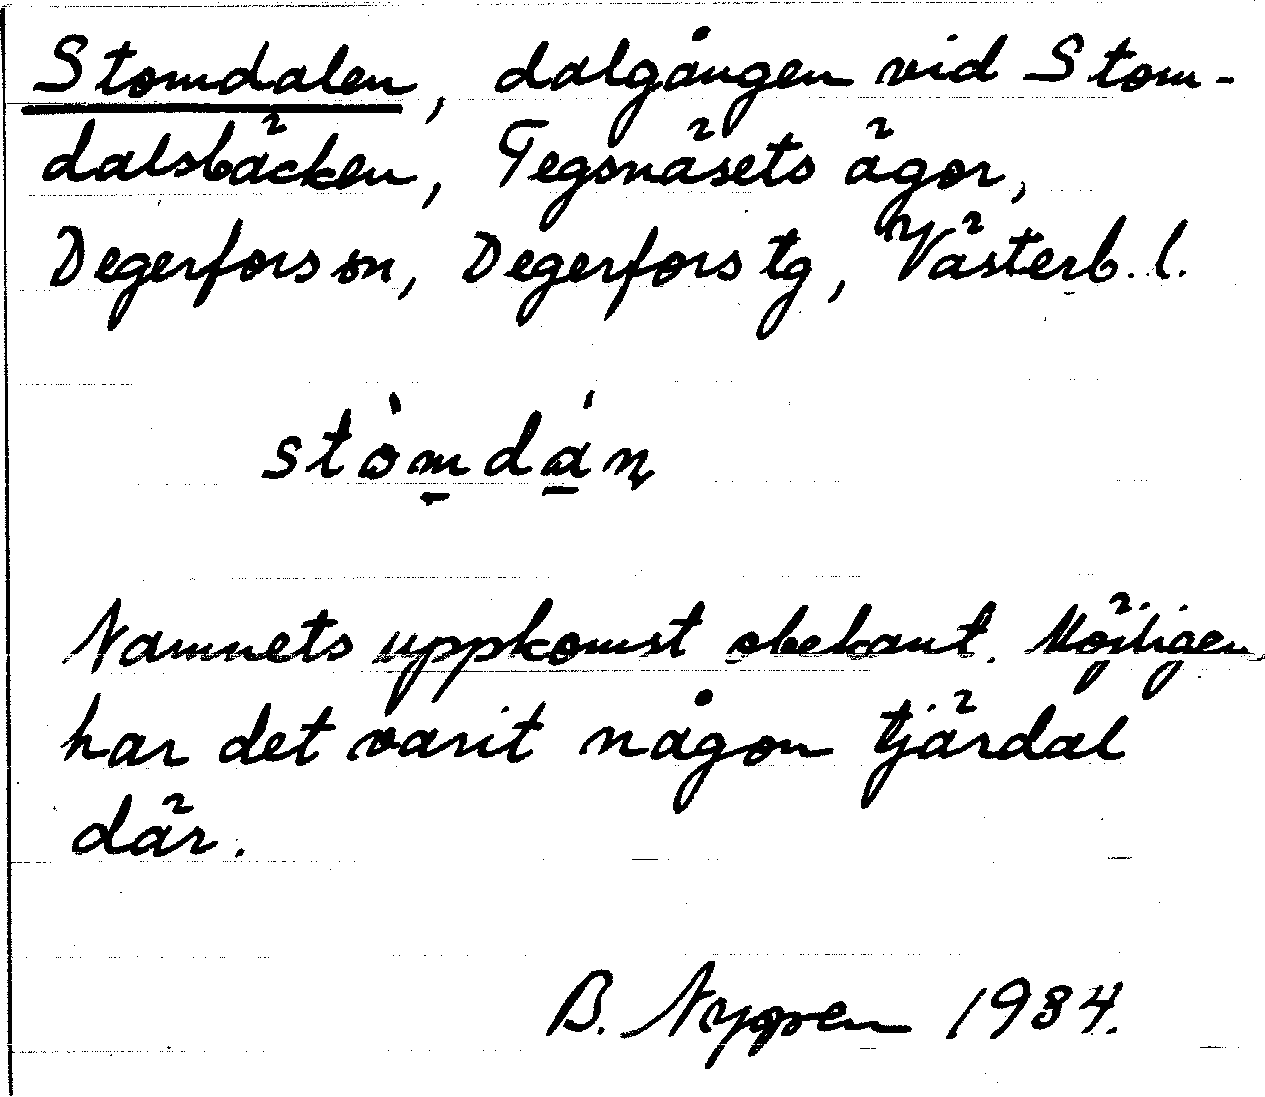 Stomdalen, dalgången vid Stom-
dalsbäcken, Tegsnäsets ägor,
Degerfors sn, Degerfors tg, Västerb. l.
stòmdán
Namnets uppkomst obekant. Möjligen
har det varit någon tjärdal
där.
B. Nygren 1934.